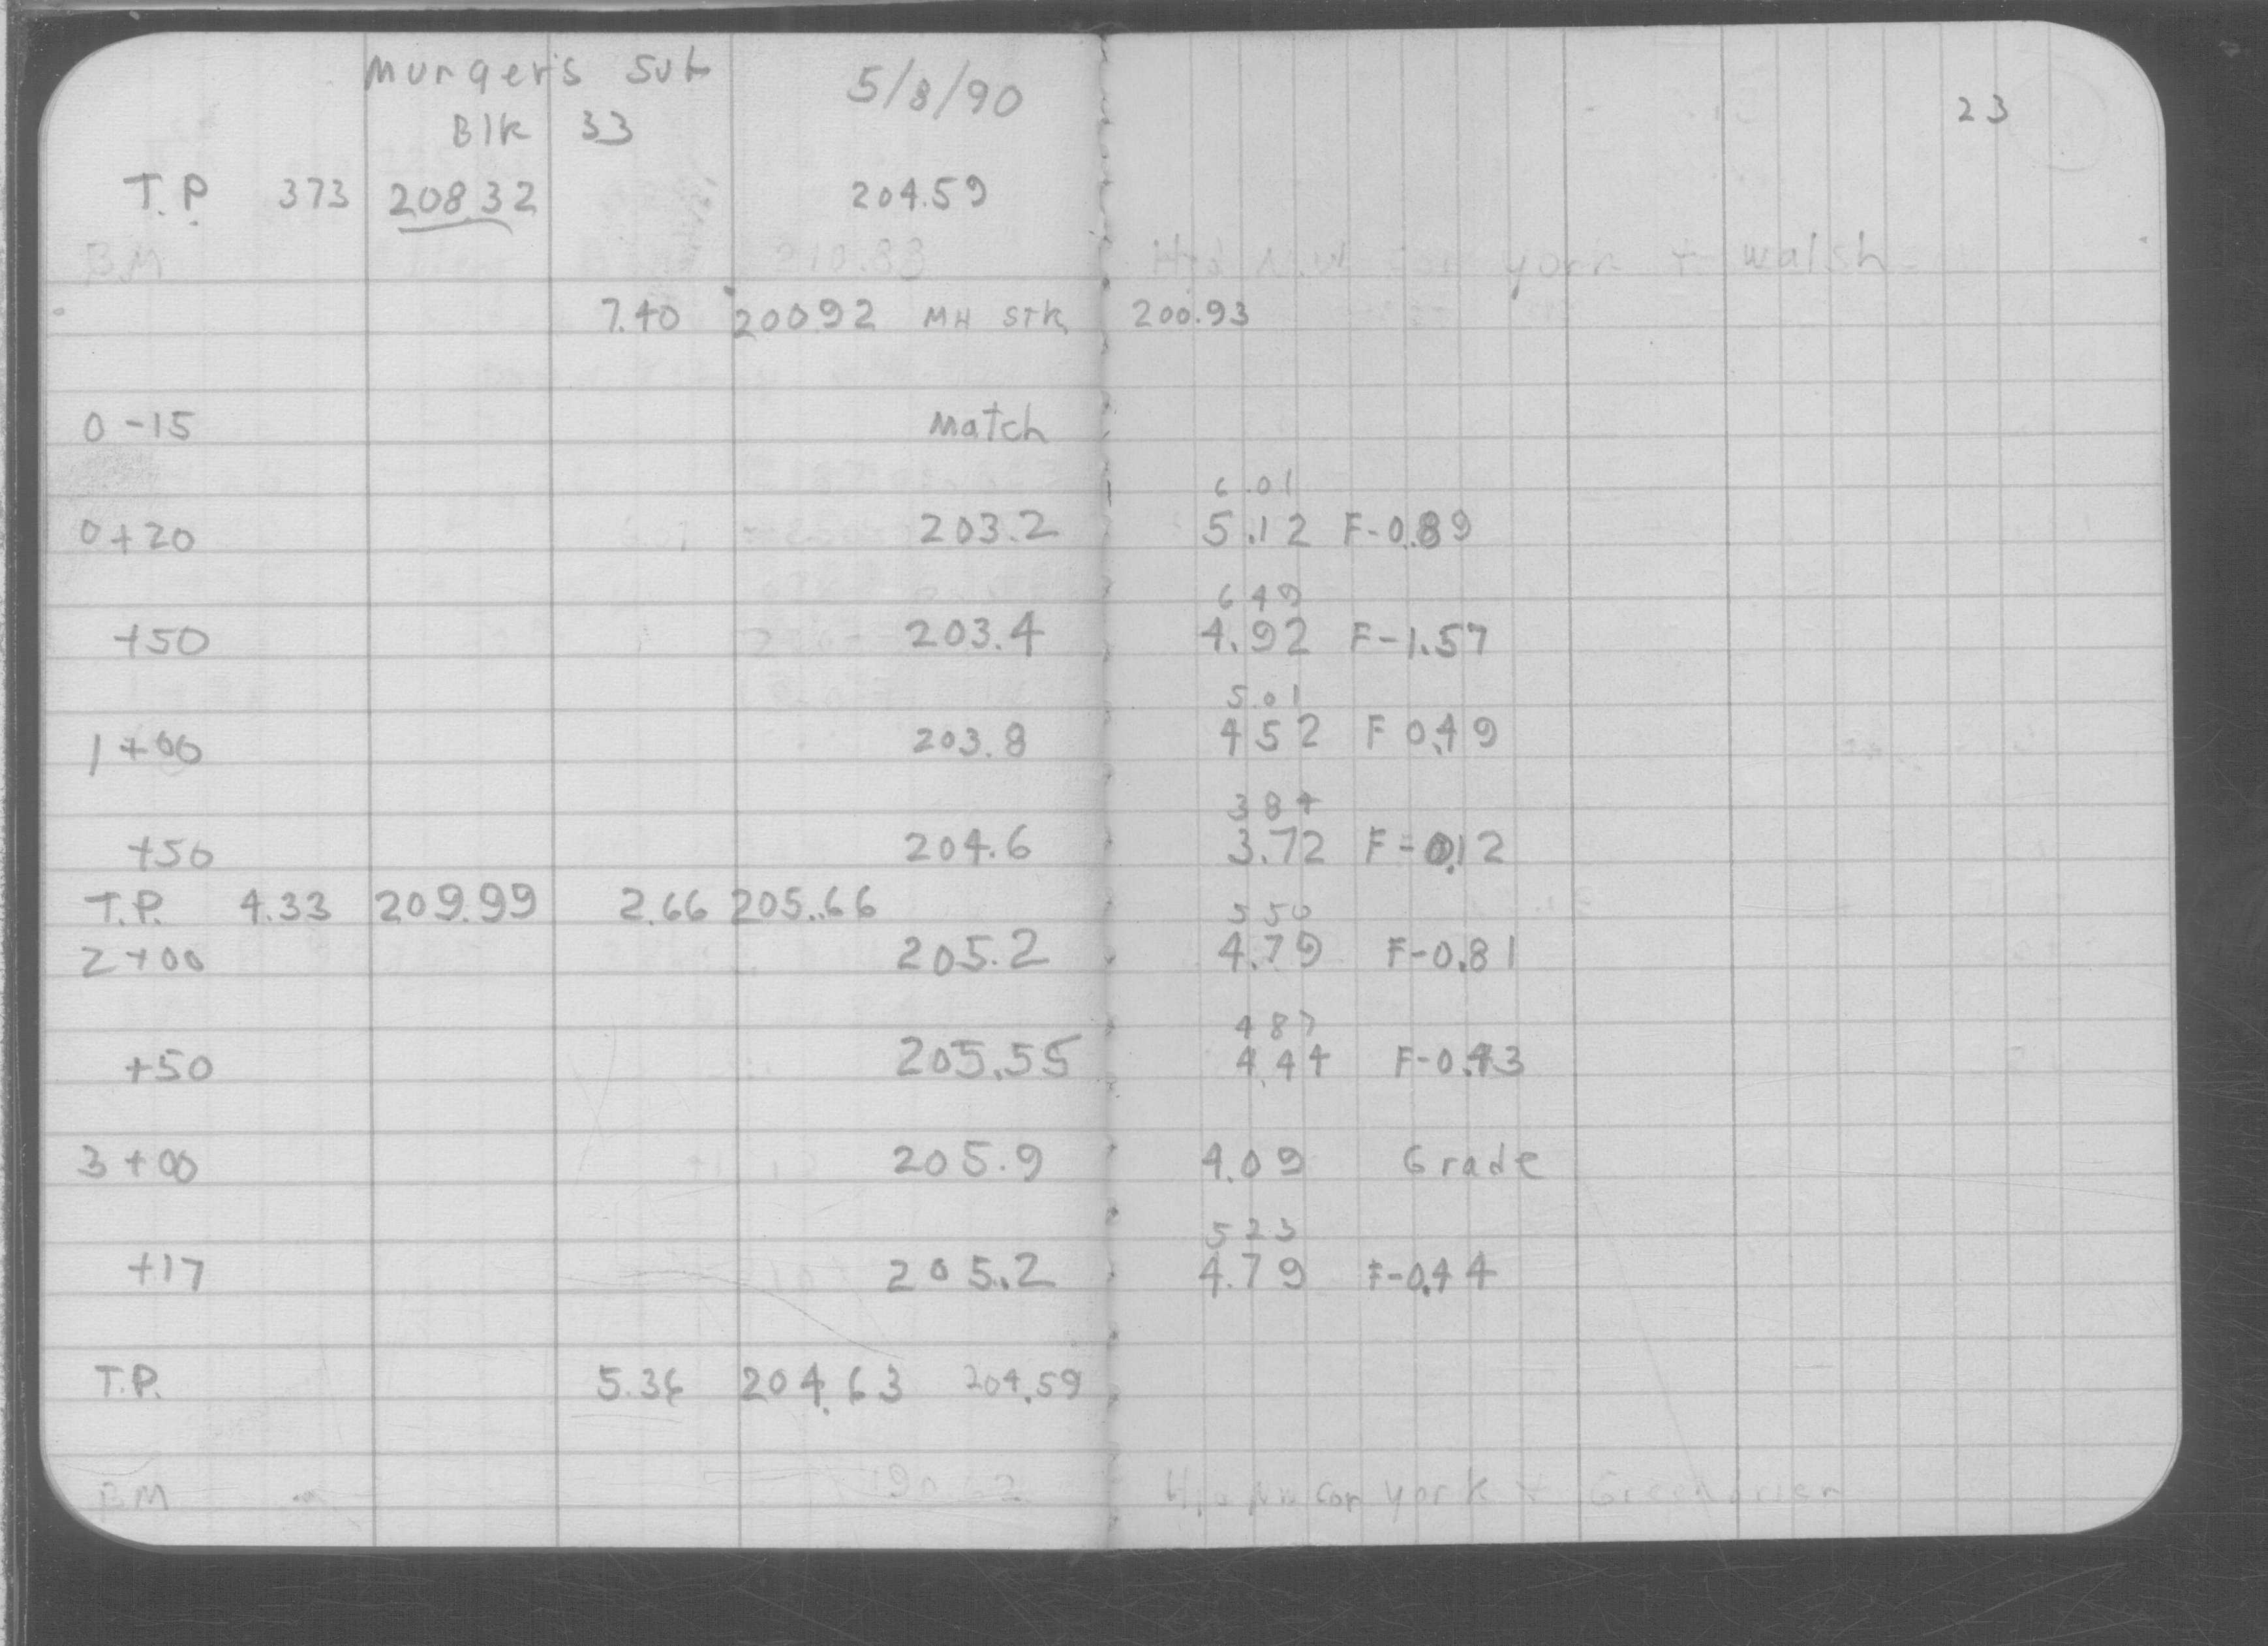 Munger's Sub 5/8/90
Blk 33 23
T.P. 373 208.32 204.59
BM 210.83 Hyd N.W. Cor york + walsh
7.40 200.92 MH Stk 200.93
0-15 Match
6.01
0+20 203.2 5.12 F-0.89
6 49
+50 203.4 4.92 F-1.57
5.01
1+00 203.8 4 5 2 F 0.49
3 8 4
+50 204.6 3.72 F-0.12
T.P. 4.33 209.99 2.66 205.66 5 50
2+00 205.2 4.79 F-0.81
4 87
+50 205.55 4.44 F-0.43
3+00 205.9 4.09 Grade
5 23
+17 205.2 4.79 F-0.44
T.P. 5.36 204.63 204.59
BM Nw Cor york +